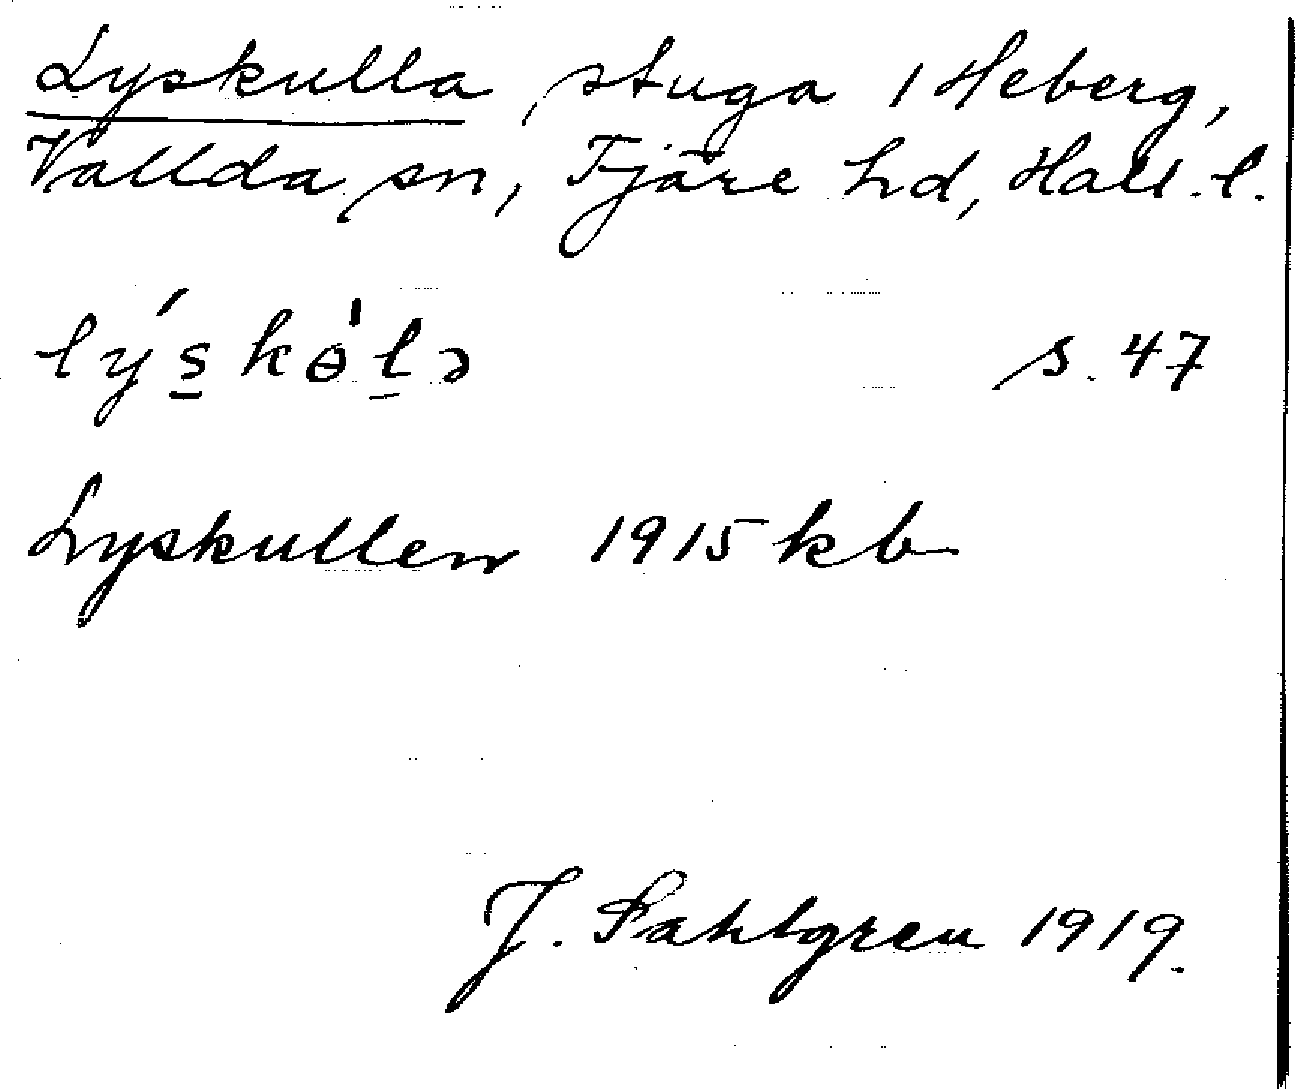 Lyskulla, stuga i Heberg,
Vallda sn, Fjäre hd, Hall. l.
lýskɵ̀lə s. 47
Lyskullen 1915 kb
J. Sahlgren 1919.